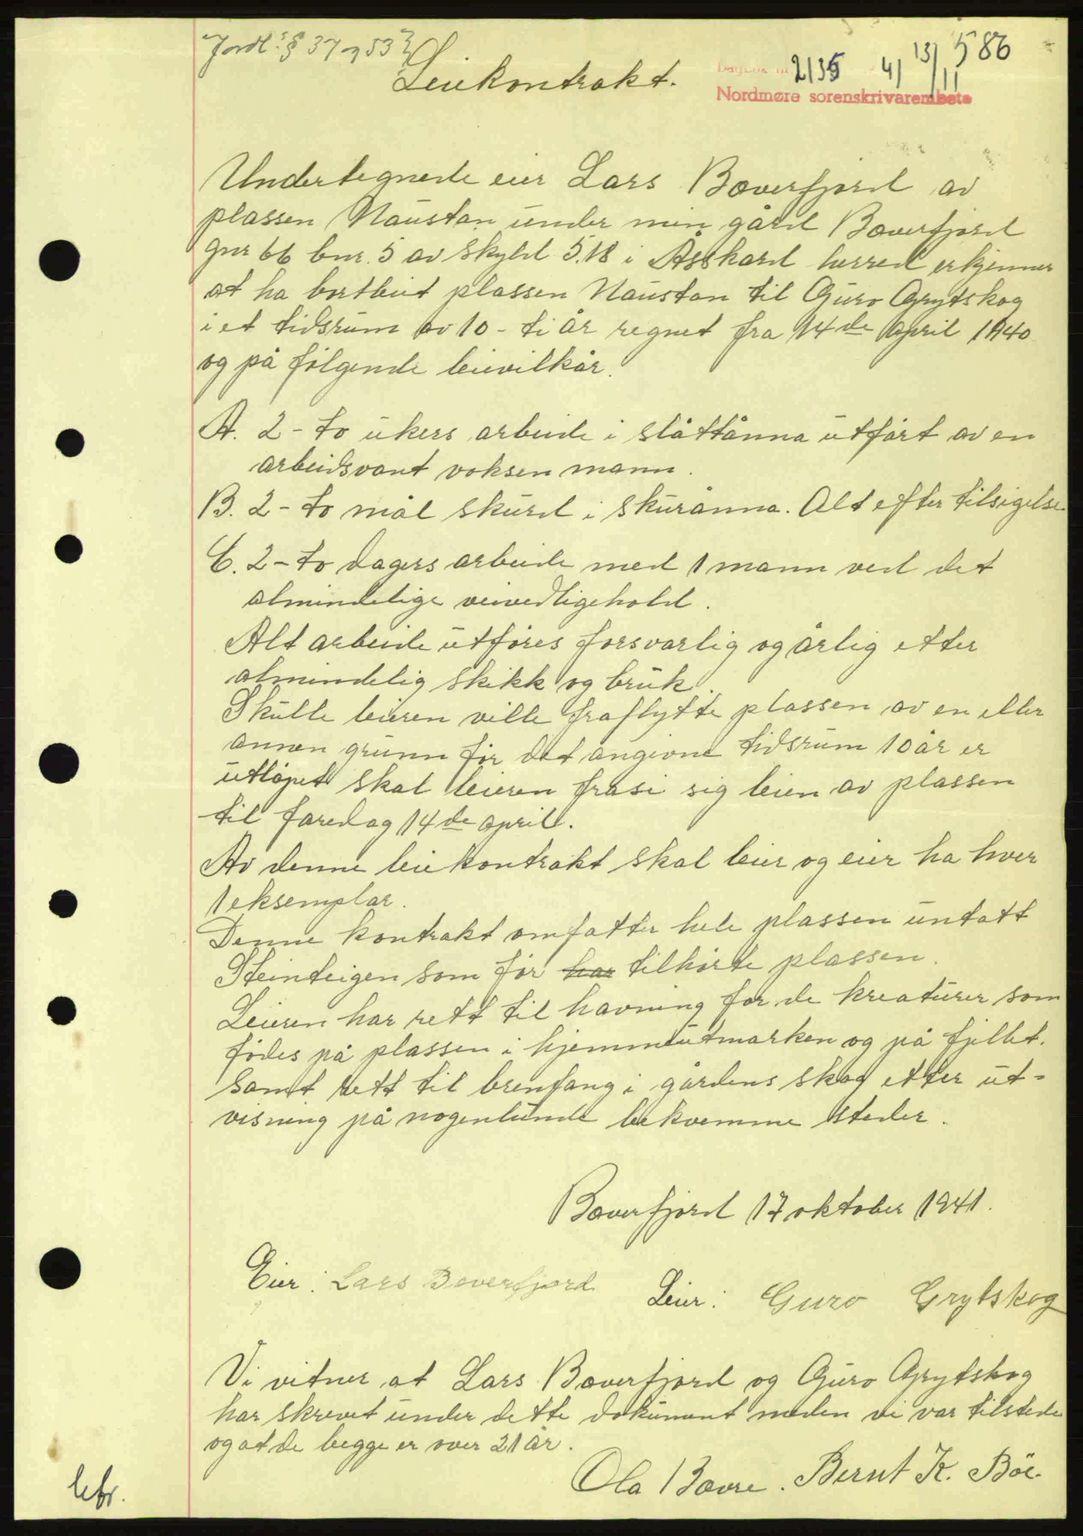 Jordl. § 37 og 53
586
Leiekontrakt.
Dagbok nr 2135 41 13/11
Nordmøre sorenskrivarembete
Undertegnede eier Lars Bæverfjord av
plassen Naustan under min gård Bæverfjord
gnr 66 bnr. 5 av skyld 5.18 i Åsskard herred erkjenner
at ha bortleiet plassen Naustan til Guro Grytskog
i et tidsrum av 10 - ti år regnet fra 14de april 1940
og på følgende leievilkår.
A. 2 - to ukers arbeide i slåttånna utført av en
arbeidsvant voksen mann.
B. 2 - to mål skurd i skurånna. Alt efter tilsigelse
C. 2 - to dagers arbeide med 1 mann ved det
almindelige veivedligehold.
Alt arbeide utføres forsvarlig og årlig etter
almindelig skikk og bruk.
Skulle leieren ville fraflytte plassen av en eller
annen grunn før det angivne tidsrum 10 år er
utløpet skal leieren frasi sig leien av plassen
til faredag 14de april.
Av denne leiekontrakt skal leier og eier ha hver
1 eksemplar.
Denne kontrakt omfatter hele plassen untatt
Steinteigen som før har tilhørte plassen.
Leieren har rett til havning for de kreaturer som
fødes på plassen i hjemmeutmarken og på fjellet.
Samt rett til brenfang i gårdens skog etter ut-
visning på nogenlunde bekvemme steder.
Bæverfjord 17 oktober 1941.
Eier: Lars Beverfjord Leier: Guro Grytskog
Vi vitner at Lars Bæverfjord og Guro Grytskog
har skrevet under dette dokument meden vi var tilstede
og at de begge er over 21 år.
Ola Bævre. Bernt K. Böe